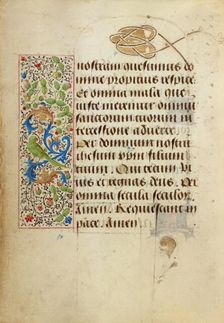 nostram quesumus do
mine propicius respice
Et omnia mala que
iuste meremur omnium
sanctorum tuorum in
tercessione aduerte.
Per dominum nostrum
ihesum xpristum filium tuum
Qui tecum
uiuit et regnat deus. Per
omnia secula seculorum
Amen. Requiescant in
pace. Amen